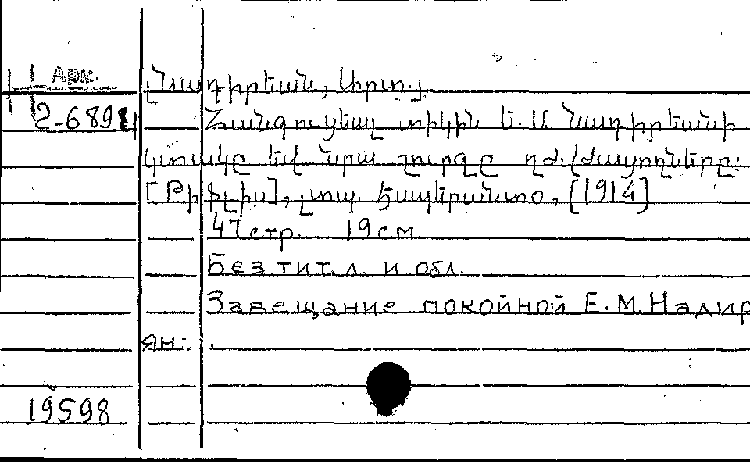 Арм.
Նադիրեան, Արտ.
2-6894
Հանգուցեալ տիկին Ե. Մ. Նադիրեանի
կտակը եվ նրա շուրջը
[Թիֆլիս], տպ. Էսպերանտօ, [1914]
47 стр. 19 см
Без тит. л. и обл.
Завещание покойной Е. М. Надир
ян.
19598